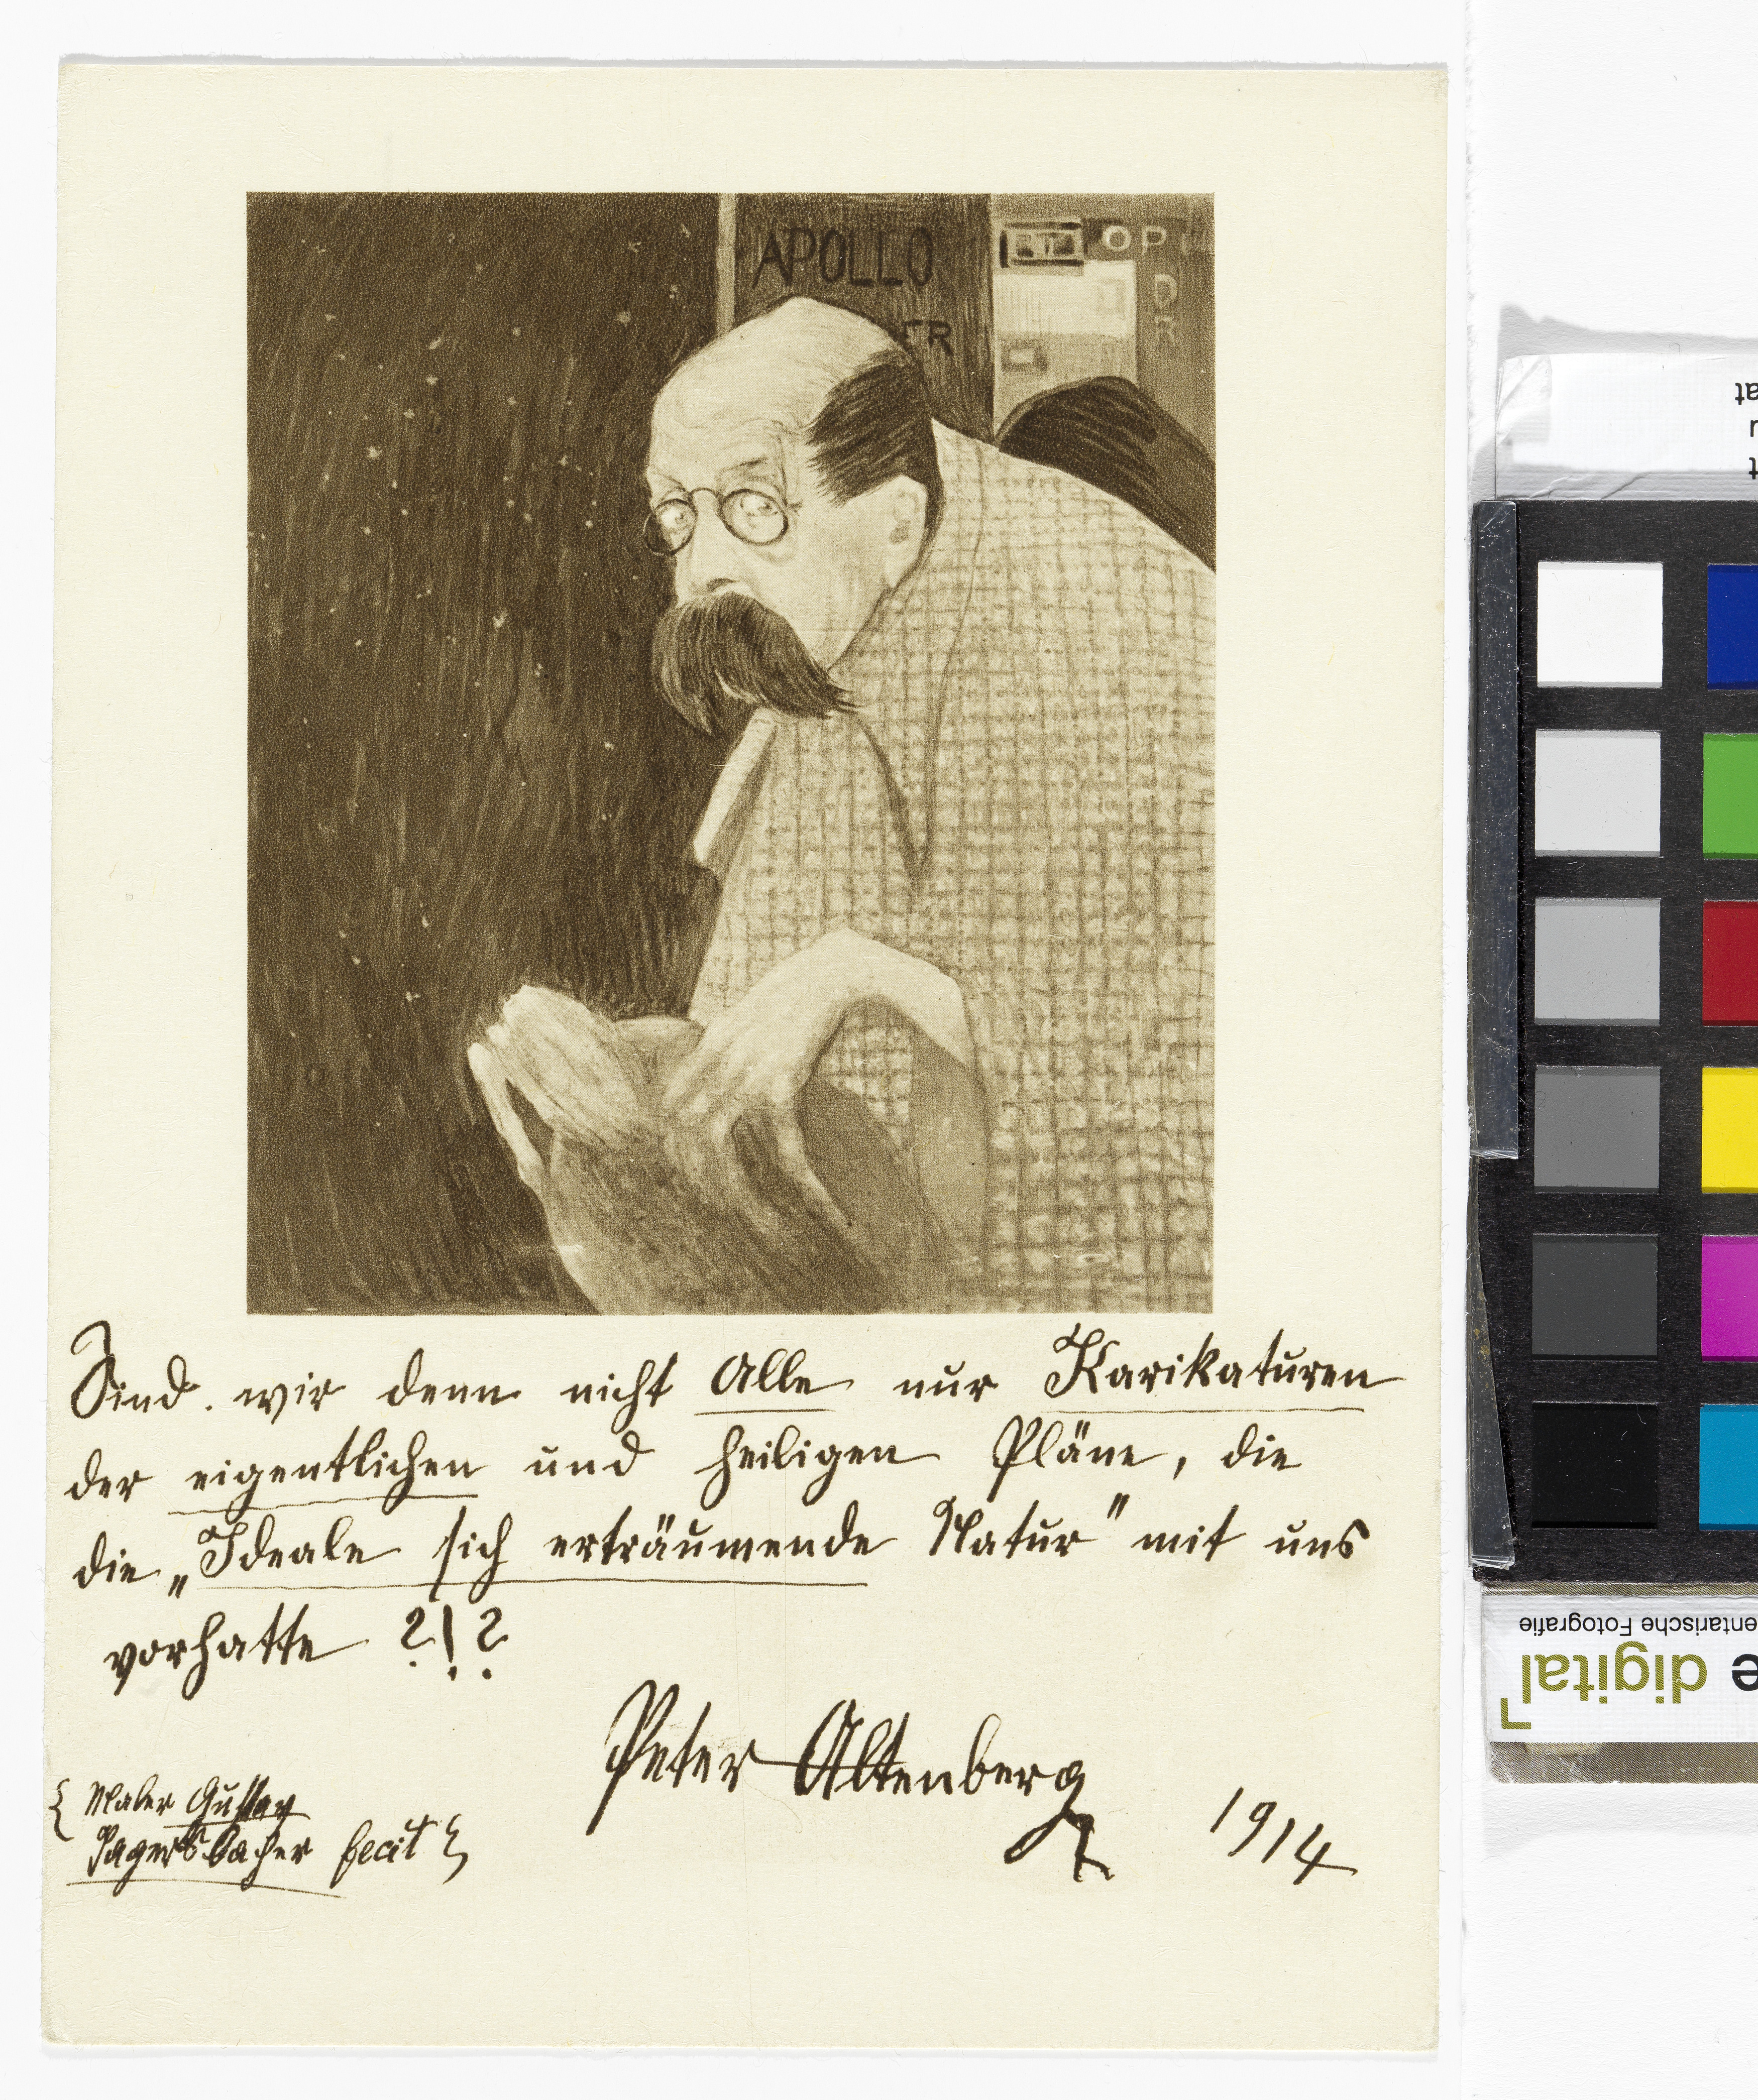 APOLLO
ER
OPI
D
R
Sind wir denn nicht Alle nur Karikaturen
der eigentlichen und heiligen Pläne, die
die „Ideale sich erträumende Natur" mit uns
vorhatte ?!?
Peter Altenberg
1914
{ Maler Gustav
Jagersbacher fecit }
entarische Fotografie
e digital